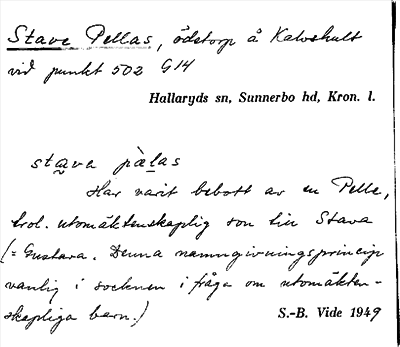 Stave Pellas, ödetorp å Kalvshult
vid punkt 502 G14
Hallaryds sn, Sunnerbo hd, Kron. l.
stava pälas
Har varit bebott av en Pelle,
trol. utomäktenskaplig son till Stava
(= Gustava. Denna namngivningsprincip
vanlig i socknen i fråga om utomäkten-
skapliga barn.)
S.-B. Vide 1949